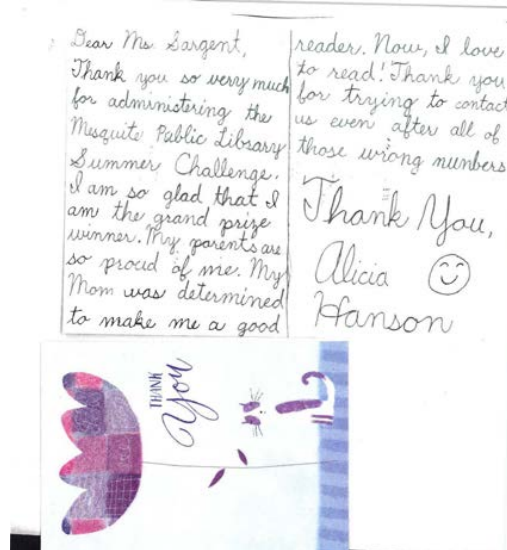 Dear Ms. Sargent,
Thank you so very much
for administering the
Mesquite Public Library
Summer Challenge.
I am so glad that I
am the grand prize
winner. My parents are
so proud of me. My
Mom was determined
to make me a good
reader. Now, I love
to read! Thank you
for trying to contact
us even after all of
those wrong numbers
Thank You,
Alicia
Hanson
THANK
You